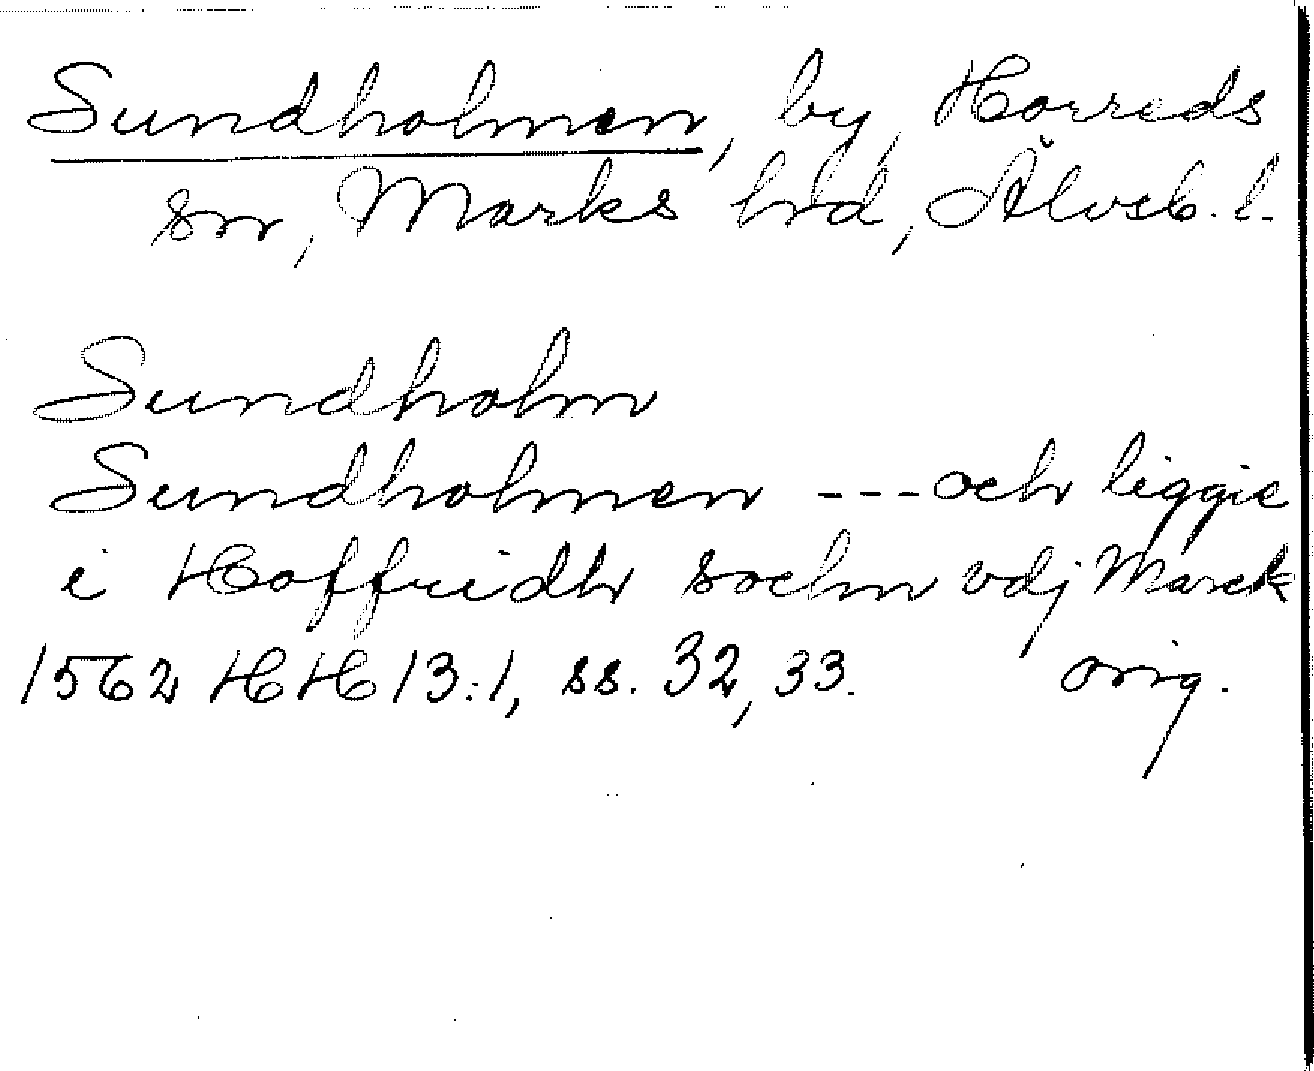 Sundholmen, by, Horreds
sn, Marks hrd, Älvsb. l.
Sundholm
Sundholmen --- och liggie
i Hoffridh sochn vdj Marck
1562 HH 13:1, ss. 32, 33. orig.